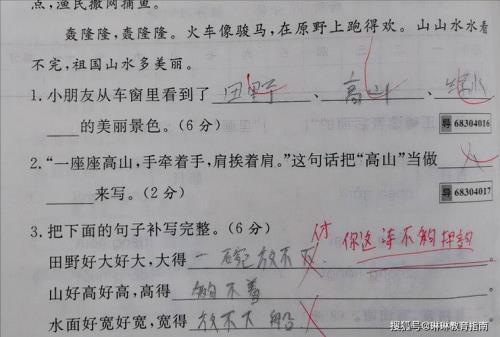 点,渔民撒网捕鱼。
轰隆隆,轰隆隆。火车像骏马,在原野上跑得欢。山山水水看
不完,祖国山水多美丽。
1.小朋友从车窗里看到了 田野、高山、绿水
的美丽景色。(6分)
68304016
2.“一座座高山,手牵着手,肩挨着肩。”这句话把“高山”当做 人
来写。(2分)
68304017
3.把下面的句子补写完整。(6分)
你这诗不够押韵
田野好大好大,大得 一碗放不下。
山好高好高,高得 够不着
水面好宽好宽,宽得 放不大船。
搜狐号@琳琳教育指南